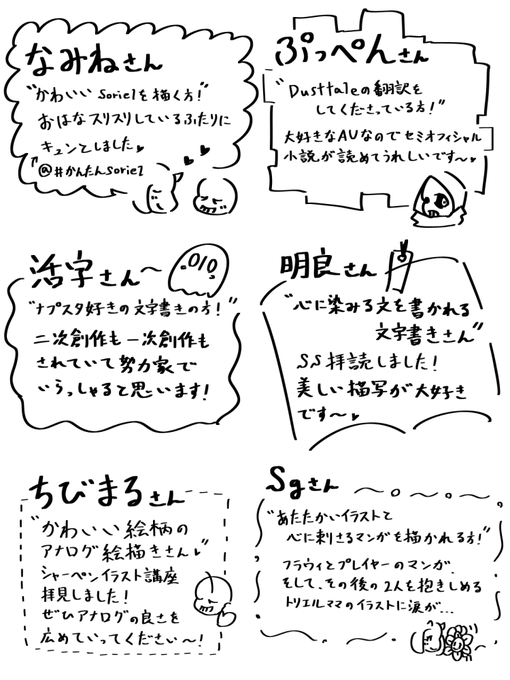 なみねさん
"かわいい sorielを描く方!"
おはなスリスリしているふたりに
キュンとしました♥
↑@#かんたんsoriel
ぷっぺんさん
"Dusttaleの翻訳を
してくださっている方!"
大好きなAUなのでセミオフィシャル
小説が読めてうれしいです〜♥
活字さん〜
"ナプスタ好きの文字書きの方!"
二次創作も一次創作も
されていて努力家で
いらっしゃると思います!
明良さん
"心に染みる文を書かれる
文字書きさん"
SS拝読しました!
美しい描写が大好き
です〜♥
ちびまるさん
"かわいい絵柄の
アナログ絵描きさん♥"
シャーペンイラスト講座
拝見しました!
ぜひアナログの良さを
広めていってください〜!
Sgさん
"あたたかいイラストと
心に刺さるマンガを描かれる方!"
フラウィとプレイヤーのマンガ、
そして、その後の2人を抱きしめる
トリエルママのイラストに涙が...